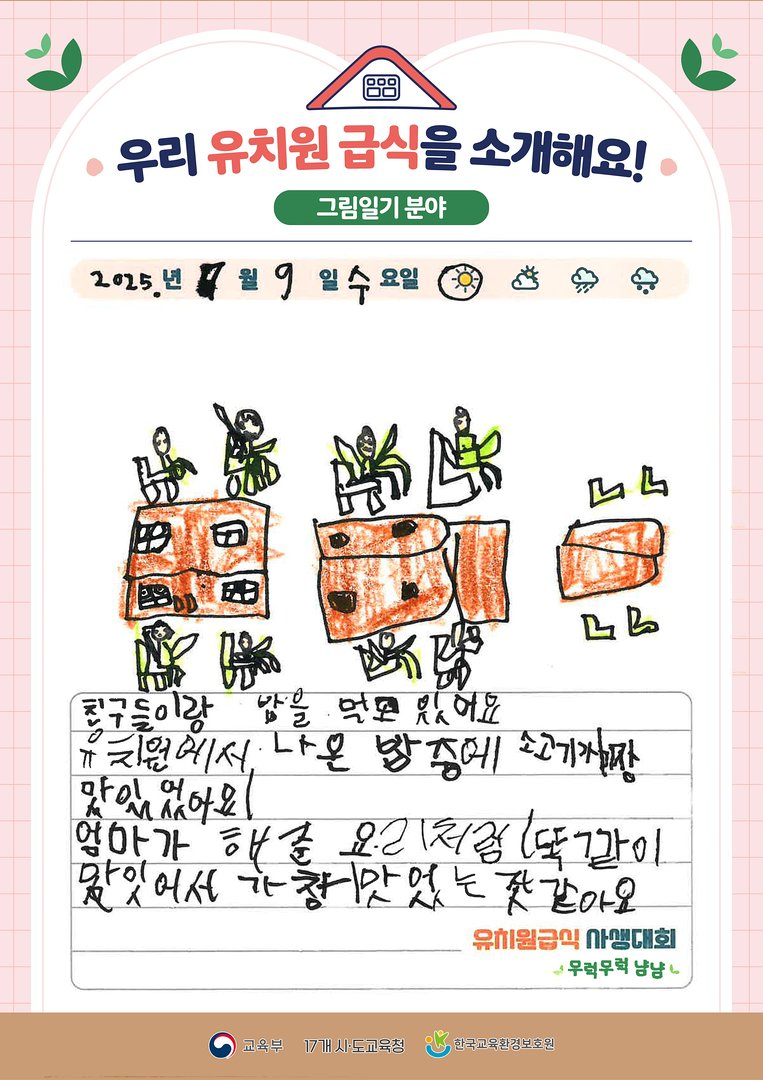 우리 유치원 급식을 소개해요!
그림일기 분야
2025.년 월 9 일 수 요일
친구들이랑 밥을 먹고 있어요
유치원에서 나온 밥 중에 소고기가 짱
맜있었아요!
엄마가 해준 요리처럼 똑같이
맜잇어서 가 맛었는 것 같아요
유치원급식 사생대회
무럭무럭 냠냠
교육부 17개 시·도교육청 한국교육환경보호원